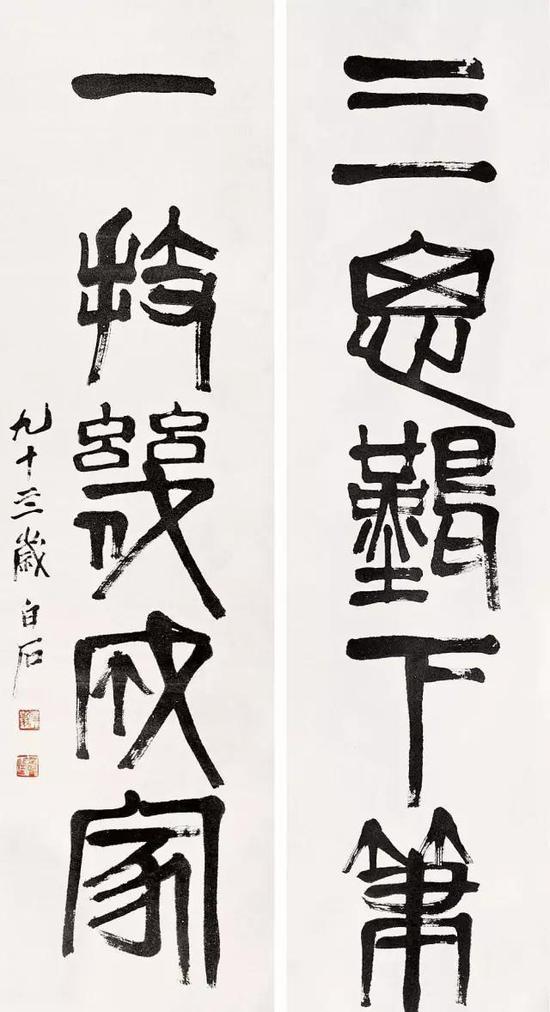 三思難下筆
一技幾成家
九十三歲白石